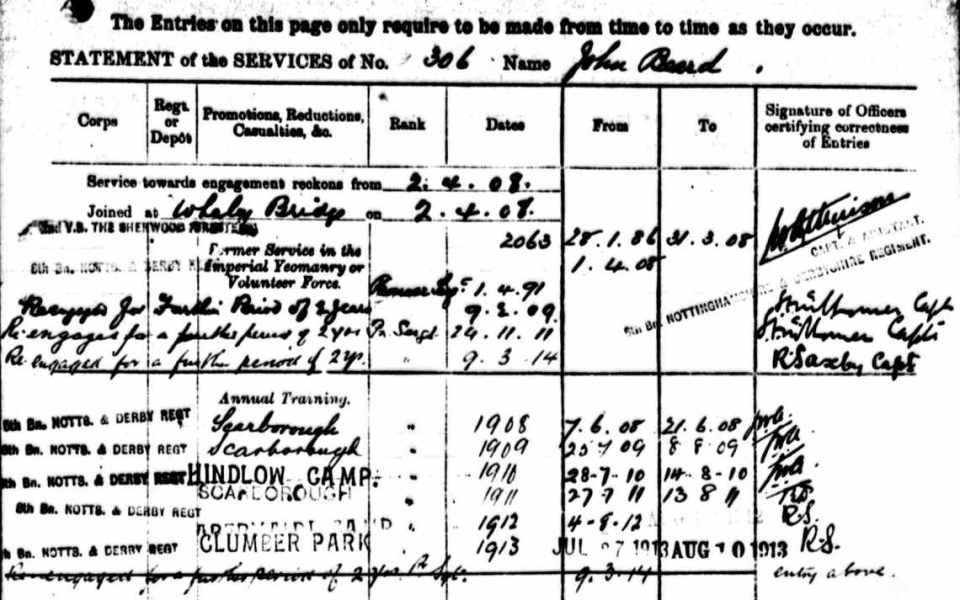 The Entries on this page only require to be made from time to time as they occur.
STATEMENT of the SERVICES of No. 306 Name John
Corps Regt. or Depôt Promotions, Reductions, Casualties, &c. Rank Dates From To Signature of Officers certifying correctness of Entries
Service towards engagement reckons from 2.4.08.
Joined at Whaley Bridge on 2.4.08.
V.B. THE SHERWOOD FORESTERS 2063 28.1.86 31.3.08
6th Bn. NOTTS. & DERBY Former Service in the Imperial Yeomanry or Volunteer Force. 1.4.08
CAPT. & ADJUTANT.
6th Bn. NOTTINGHAMSHIRE & DERBYSHIRE REGIMENT.
1.4.91
Reengaged for Further Period of 2 years 9.3.09 Capt
Re-engaged for a further period of 2 yrs Pr Sergt 24.11.11 Capt
Re engaged for a further period of 2 yrs. " 9.3.14 R Saxby Capt
Annual Training.
6th Bn. NOTTS. & DERBY REGT Scarborough " 1908 7.6.08 21.6.08
6th Bn. NOTTS. & DERBY REGT Scarborough " 1909 25 7 09 8 8 09
6th Bn. NOTTS. & DERBY REGT HINDLOW CAMP. " 1910 28-7-10 14-8-10
SCARBOROUGH " 1911 27 7 11 13 8 11
6th Bn. NOTTS. & DERBY REGT " 1912 4-8-12 R.S.
Bn. NOTTS. & DERBY REGT CLUMBER PARK " 1913 JUL 27 1913 AUG 10 1913 R.S.
Re-engaged for a further period of 2 yrs. Pr Sgt. 9.3.14 entry above.